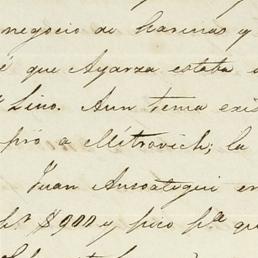 negocio de harinas y
que Ayarza estaba
Lino. Aun tenia exis
pró a Mitrovich; la
Juan Ansoategui en
$900 y pico pª qu